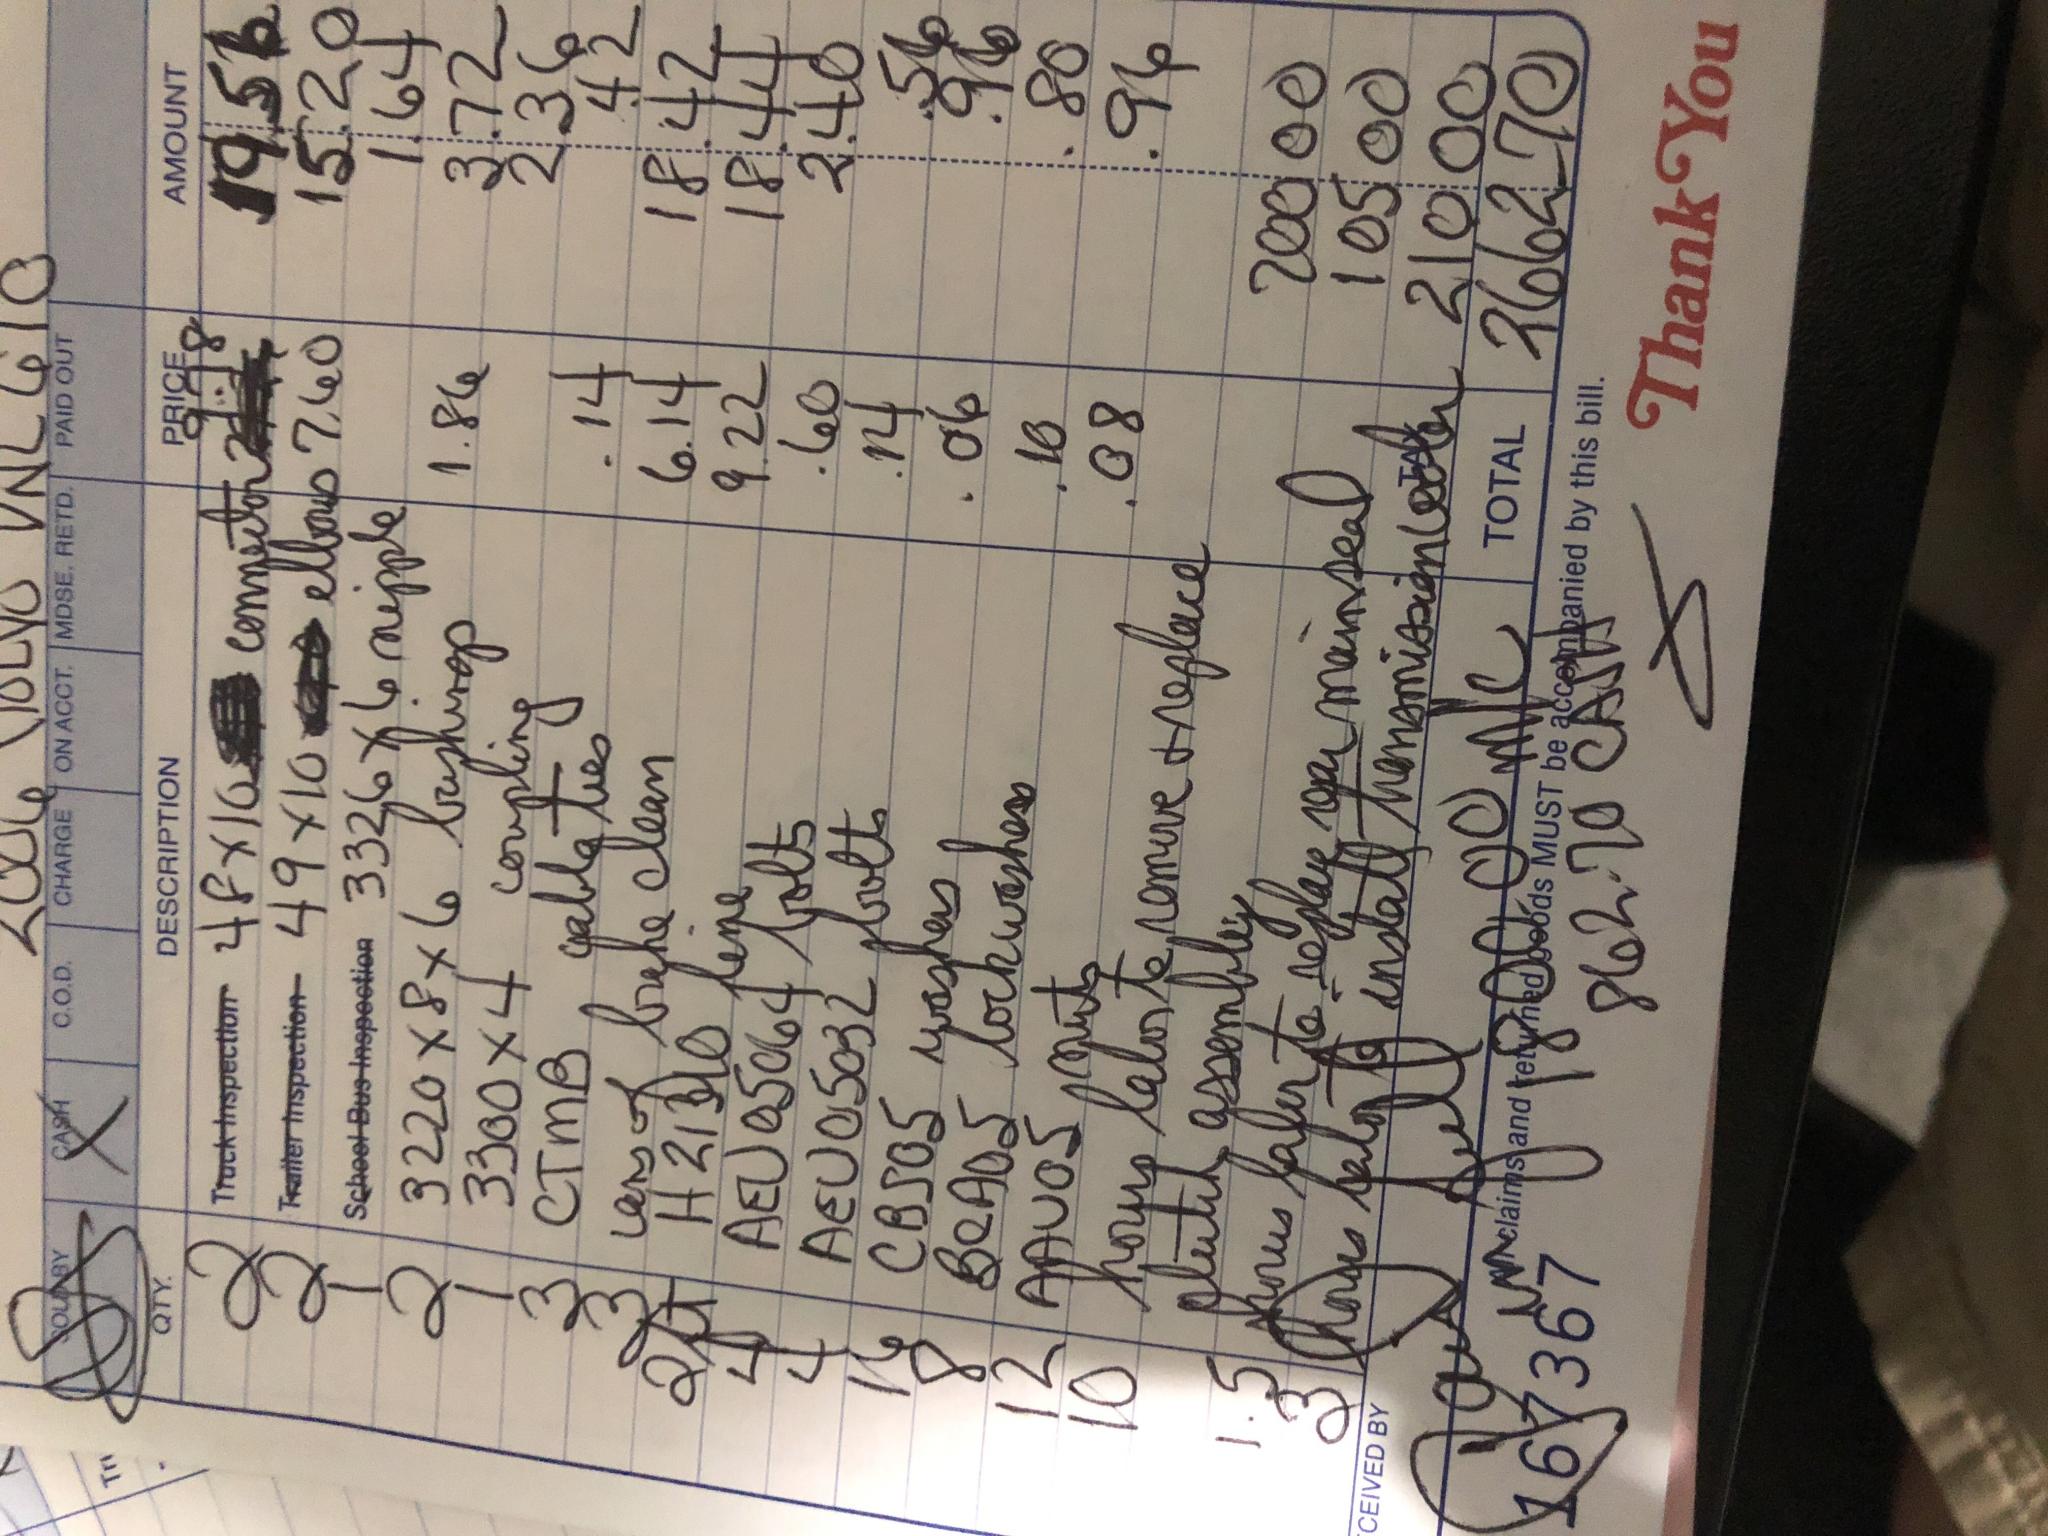 2006 VOLVO VNL 610
SOLD BY CASH C.O.D. CHARGE ON ACCT. MDSE. RETD. PAID OUT
X
QTY. DESCRIPTION PRICE AMOUNT
2 Truck Inspection 48 x 10 connector 9.78 19.56
2 Trailer Inspection 49 x 10 elbows 7.60 15.20
1 School Bus Inspection 3326 x 6 nipple 1.64
2 3220 x 8 x 6 bushings 1.86 3.72
1 3300 x 4 coupling 2.36
3 CTMB cable ties .14 .42
3 cans of brake clean 6.14 18.42
2 ft H21340 line 9.22 18.44
4 AEU05064 bolts .60 2.40
4 AEU05032 bolts .14 .56
16 CBJ05 washers .06 .96
8 BQA05 lockwashers .10 .80
12 AAU05 nuts .08 .96
10 hours labor to remove & replace
clutch assembly 700 00
1.5 hours labor to replace rear main seal 105 00
3 hours labor to install transmission cooler 210 00
RECEIVED BY TAX
TOTAL 2662-70
All claims and returned goods MUST be accompanied by this bill.
1800.00 MC
167367 862.70 CASH
Thank You